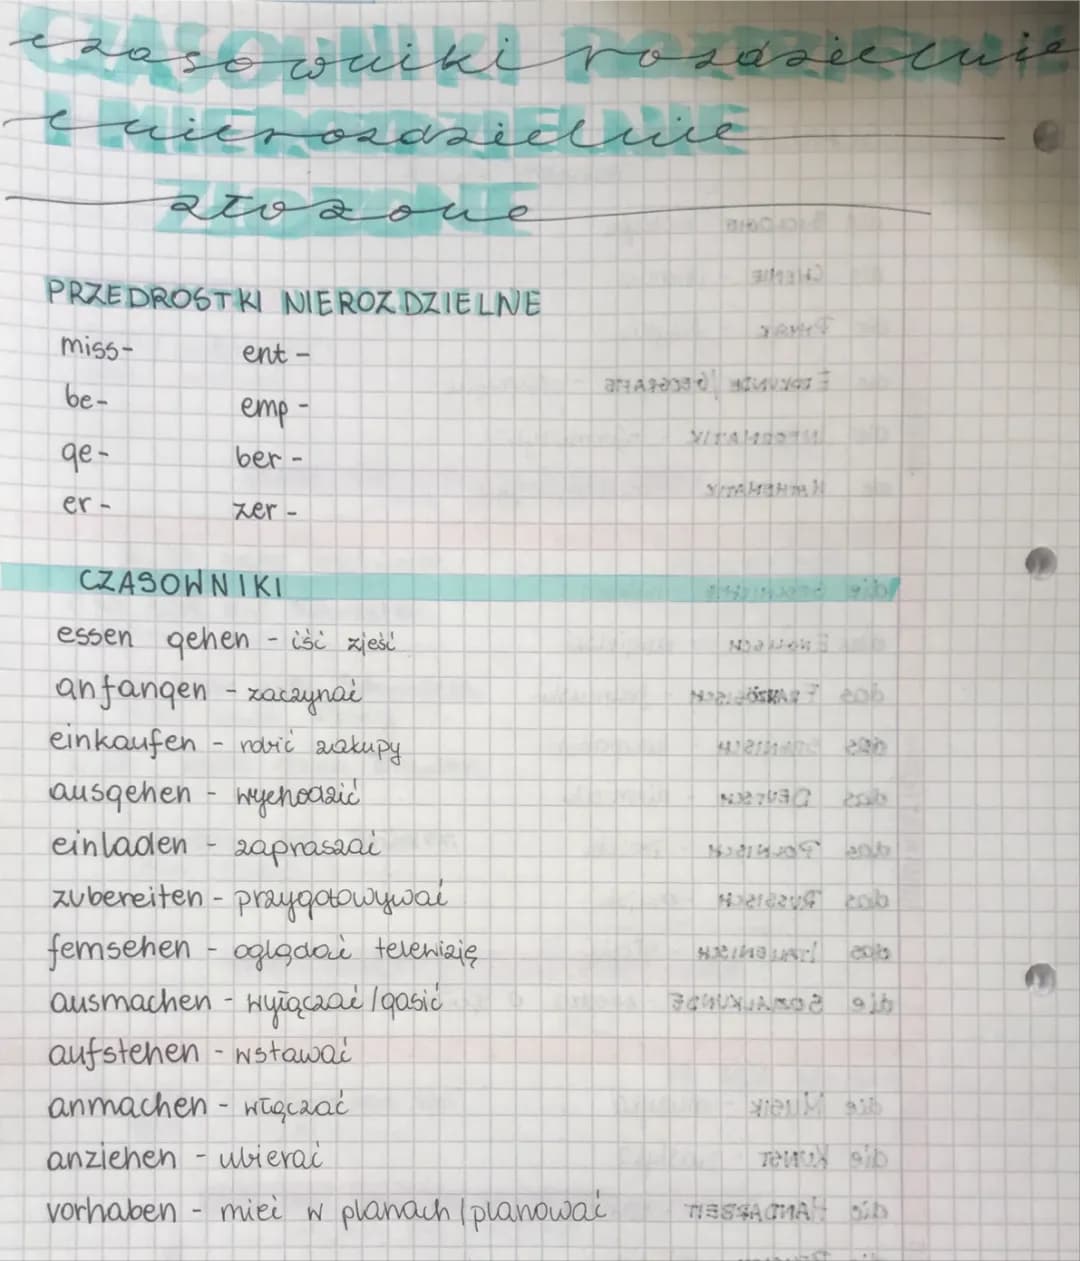 czasowniki rozdzielnie
i nierozdzielnie
złożone
PRZEDROSTKI NIEROZDZIELNE
miss- ent -
be- emp -
ge- ber -
er- zer -
CZASOWNIKI
essen gehen - iść zjeść
anfangen - zaczynać
einkaufen - robić zakupy
ausgehen - wychodzić
einladen - zapraszać
zubereiten - przygotowywać
fernsehen - oglądać telewizję
ausmachen - wyłączać / gasić
aufstehen - wstawać
anmachen - włączać
anziehen - ubierać
vorhaben - mieć w planach / planować